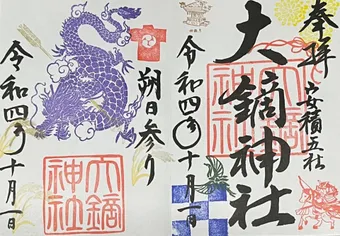 奉拝
安積五社
大鏑神社
令和四年十月一日
大鏑神社
朔日参り
令和四年十月一日
大鏑
神社